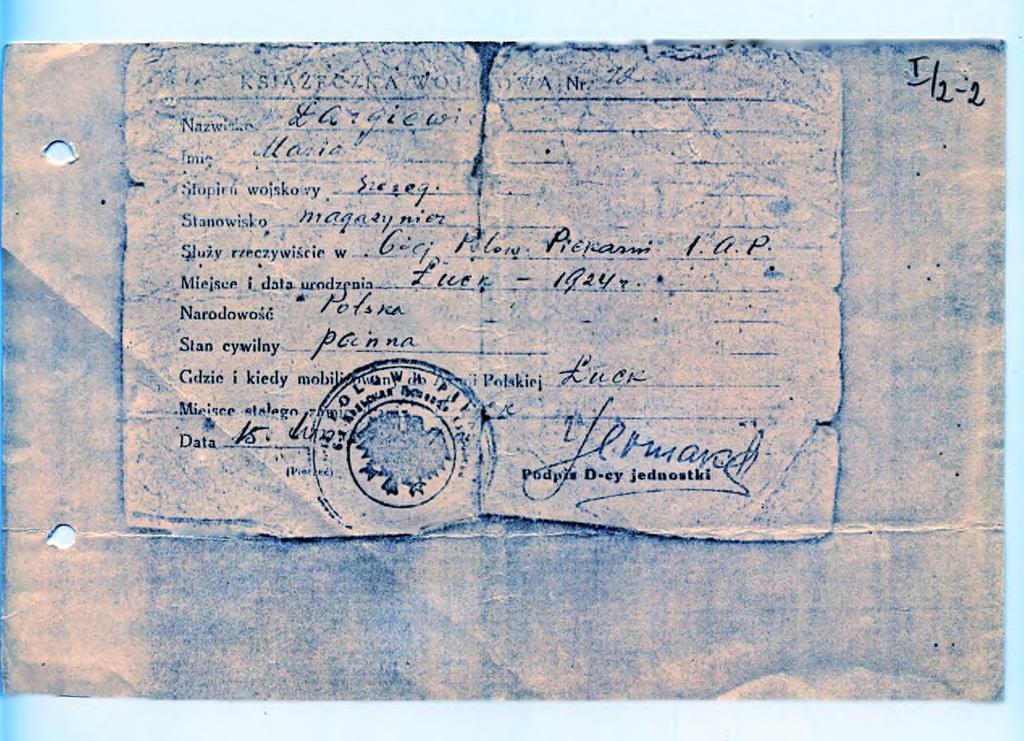 I/2-2
KSIĄŻECZKA WOJSKOWA Nr.
Nazwisko Łargiewi
Imię Maria
Stopień wojskowy szereg.
Stanowisko magazynier
Służy rzeczywiście w 6-ej Polow. Piekarni 1. A. P.
Miejsce i data urodzenia Łuck - 1924 r.
Narodowość Polska
Stan cywilny panna
Gdzie i kiedy mobilizowany do Armii Polskiej Łuck
Miejsce stałego
Data 15.
(Pieczęć)
Podpis D-cy jednostki